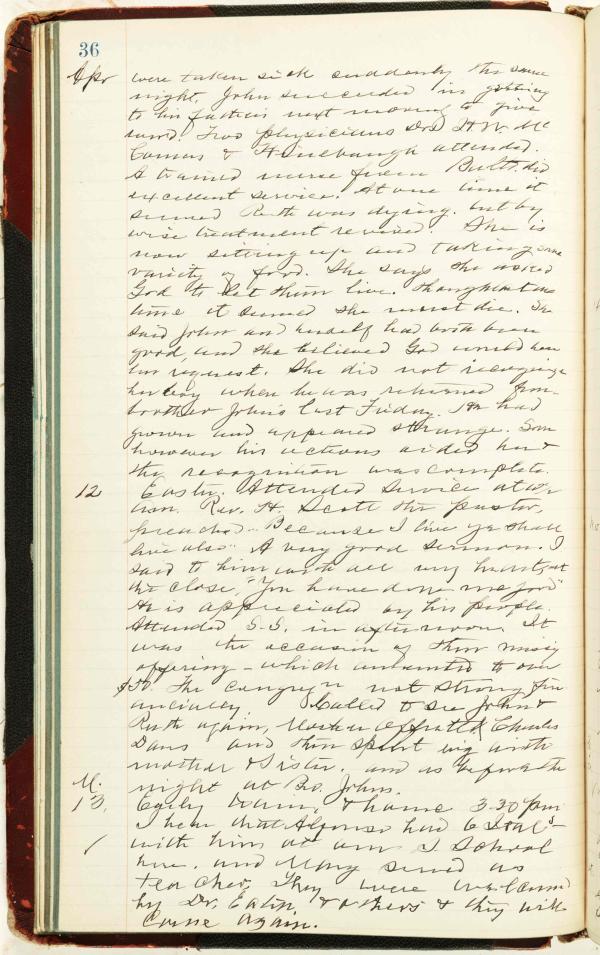 36
Apr were taken sick suddenly the same
night, John succeeded in getting
to his father's next morning to give
word. Two physicians Drs H. W. Mc
Comas & Hinebaugh attended.
A trained nurse from Balto. did
excellent service. At one time it
seemed Ruth was dying. but by
wise treatment revived. She is
now sitting up and taking some
variety of food. She says she asked
God to let them live. though at one
time it seemed she must die. She
said John and herself had both been
good, and she believed God would hear
her request. She did not recognize
her boy when he was returned from
brother John's last Friday. He had
grown and appeared strange. Soon
however his actions aided her &
the recognition was complete.
12 Easter. Attended service at
Rev. H. Scott the pastor,
preached "Because I live ye shall
live also" A very good sermon. I
said to him with all my heart, at
the close, "You have done me good"
He is appreciated by his people.
Attended S.S. in afternoon. It
was the occasion of their missy
offering - which amounted to over
$50. The congregn not strong fin
ancially. Called to see John &
Ruth again, Charles
Davis and then spent evg with
mother & sister. and as before the
night at Bro. Johns.
M.
13. Early train, & home 3.30 pm
I hear that Alfonso had 6 Ital's
with him at our S School
here, and Mary served as
teacher. They were welcomed
by Dr. Eaton & others & they will
come again.